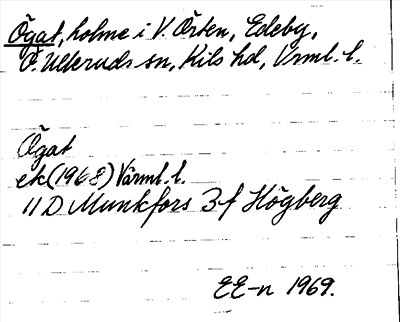 Ögat, holme i V. Örten, Edeby,
Ö. Ulleruds sn, Kils hd, Vrml. l.
Ögat
ek (1968) Värml. l.
11 D Munkfors 3 f Högberg
EE-n 1969.